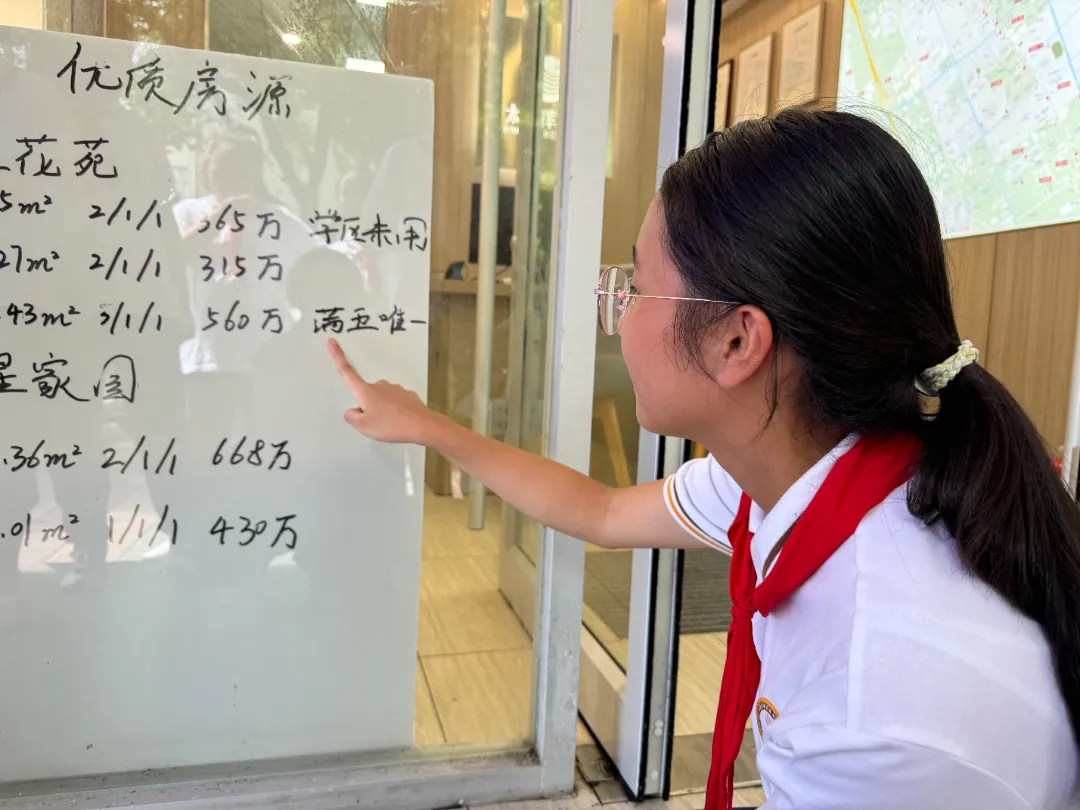 优质房源
花苑
5m² 2/1/1 365万 学区未用
27m² 2/1/1 315万
.43m² 2/1/1 560万 满五唯一
星家园
.36m² 2/1/1 668万
.01m² 1/1/1 430万